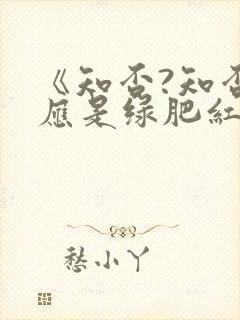 《知否?知否
应是绿肥红
愁小丫